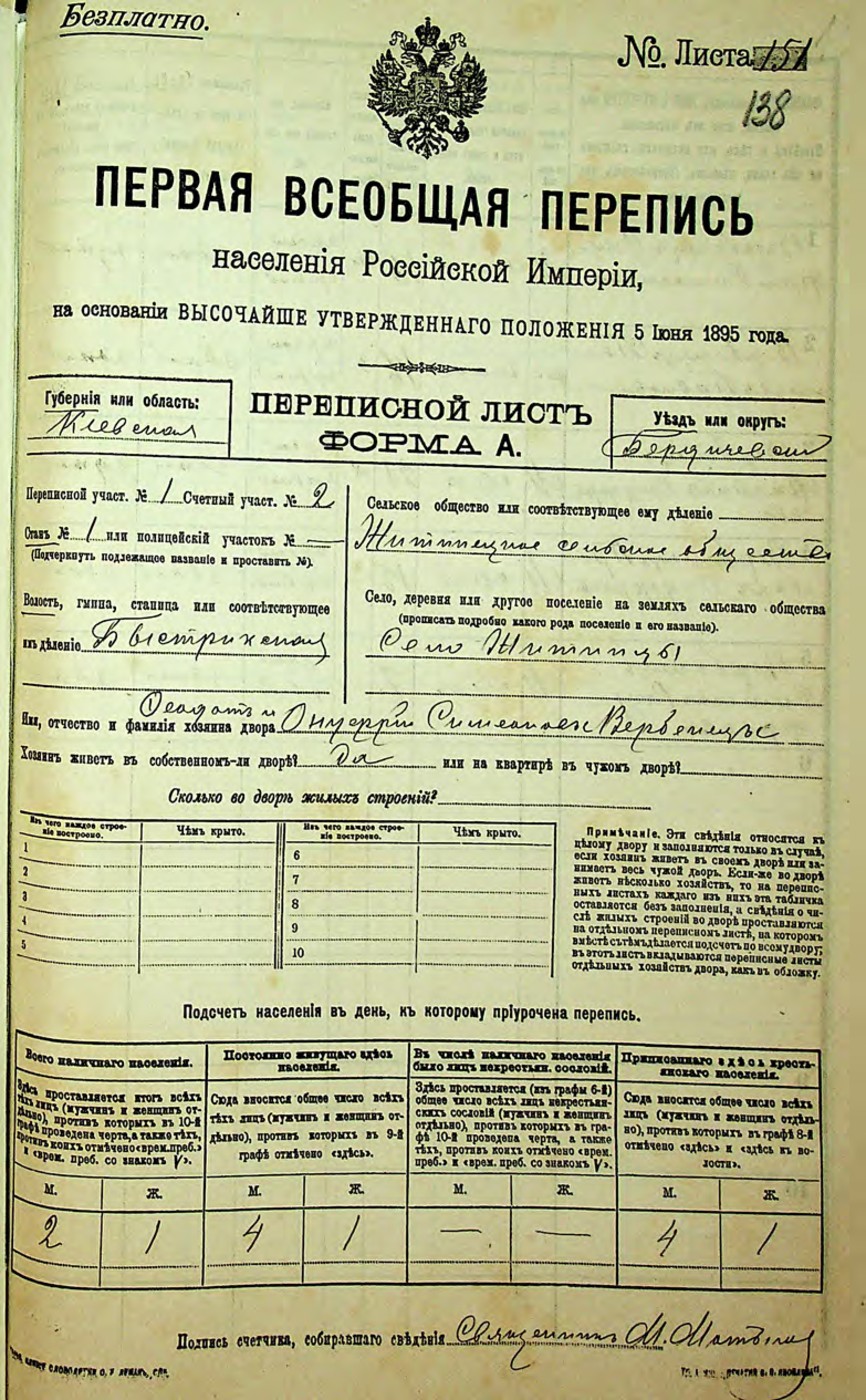 Безплатно.
№. Листа 151
138
ПЕРВАЯ ВСЕОБЩАЯ ПЕРЕПИСЬ
населенія Россійской Имперіи,
на основаніи ВЫСОЧАЙШЕ УТВЕРЖДЕННАГО ПОЛОЖЕНІЯ 5 Іюня 1895 года.
Губернія или область:
Кіевская
ПЕРЕПИСНОЙ ЛИСТЪ
ФОРМА А.
Уѣздъ или округъ:
Бердичевскій
Переписной участ. № 1 Счетный участ. № 2
Станъ № 1 или полицейскій участокъ № —
(Подчеркнуть подлежащее названіе и проставить №).
Волость, гмина, станица или соотвѣтствующее
имъ дѣленіе Быстрикская
Сельское общество или соотвѣтствующее ему дѣленіе
Житинецкое сельское общество
Село, деревня или другое поселеніе на земляхъ сельскаго общества
(прописать подробно какого рода поселеніе и его названіе).
Село Житинцы
Феодотъ и
Имя, отчество и фамилія хозяина двора Онуфрій Симеоновъ Вербецъ
Хозяинъ живетъ въ собственномъ-ли дворѣ? Да или на квартирѣ въ чужомъ дворѣ?
Сколько во дворѣ жилыхъ строеній?
Изъ чего каждое строеніе построено. Чѣмъ крыто. Изъ чего каждое строеніе построено. Чѣмъ крыто.
1 6
2 7
3 8
4 9
5 10
Примѣчаніе. Эти свѣдѣнія относятся къ
цѣлому двору и заполняются только въ случаѣ,
если хозяинъ живетъ въ своемъ дворѣ или за-
нимаетъ весь чужой дворъ. Если-же во дворѣ
живетъ нѣсколько хозяйствъ, то на перепис-
ныхъ листахъ каждаго изъ нихъ эта табличка
оставляется безъ заполненія, а свѣдѣнія о чи-
слѣ жилыхъ строеній во дворѣ проставляются
на отдѣльномъ переписномъ листѣ, на которомъ
вмѣстѣ съ тѣмъ дѣлается подсчетъ по всему двору;
въ этотъ листъ вкладываются переписные листы
отдѣльныхъ хозяйствъ двора, какъ въ обложку.
Подсчетъ населенія въ день, къ которому пріурочена перепись.
Всего наличнаго населенія.
Здѣсь проставляется итогъ всѣхъ
тѣхъ лицъ (мужчинъ и женщинъ от-
дѣльно), противъ которыхъ въ 10-й
графѣ проведена черта, а также тѣхъ,
противъ коихъ отмѣчено «врем. преб.»
и «врем. преб. со знакомъ V».
Постоянно живущаго здѣсь
населенія.
Сюда вносится общее число всѣхъ
тѣхъ лицъ (мужчинъ и женщинъ от-
дѣльно), противъ которыхъ въ 9-й
графѣ отмѣчено «здѣсь».
Въ числѣ наличнаго населенія
было лицъ некрестьян. сословій.
Здѣсь проставляется (изъ графы 6-й)
общее число всѣхъ лицъ некрестьян-
скихъ сословій (мужчинъ и женщинъ
отдѣльно), противъ которыхъ въ гра-
фѣ 10-й проведена черта, а также
тѣхъ, противъ коихъ отмѣчено «врем.
преб.» и «врем. преб. со знакомъ V».
Приписаннаго здѣсь кресть-
янскаго населенія.
Сюда вносится общее число всѣхъ
лицъ (мужчинъ и женщинъ отдѣль-
но), противъ которыхъ въ графѣ 8-й
отмѣчено «здѣсь» и «здѣсь въ во-
лости».
М. Ж. М. Ж. М. Ж. М. Ж.
2 1 4 1 — — 4 1
Подпись счетчика, собиравшаго свѣдѣнія Священникъ М.